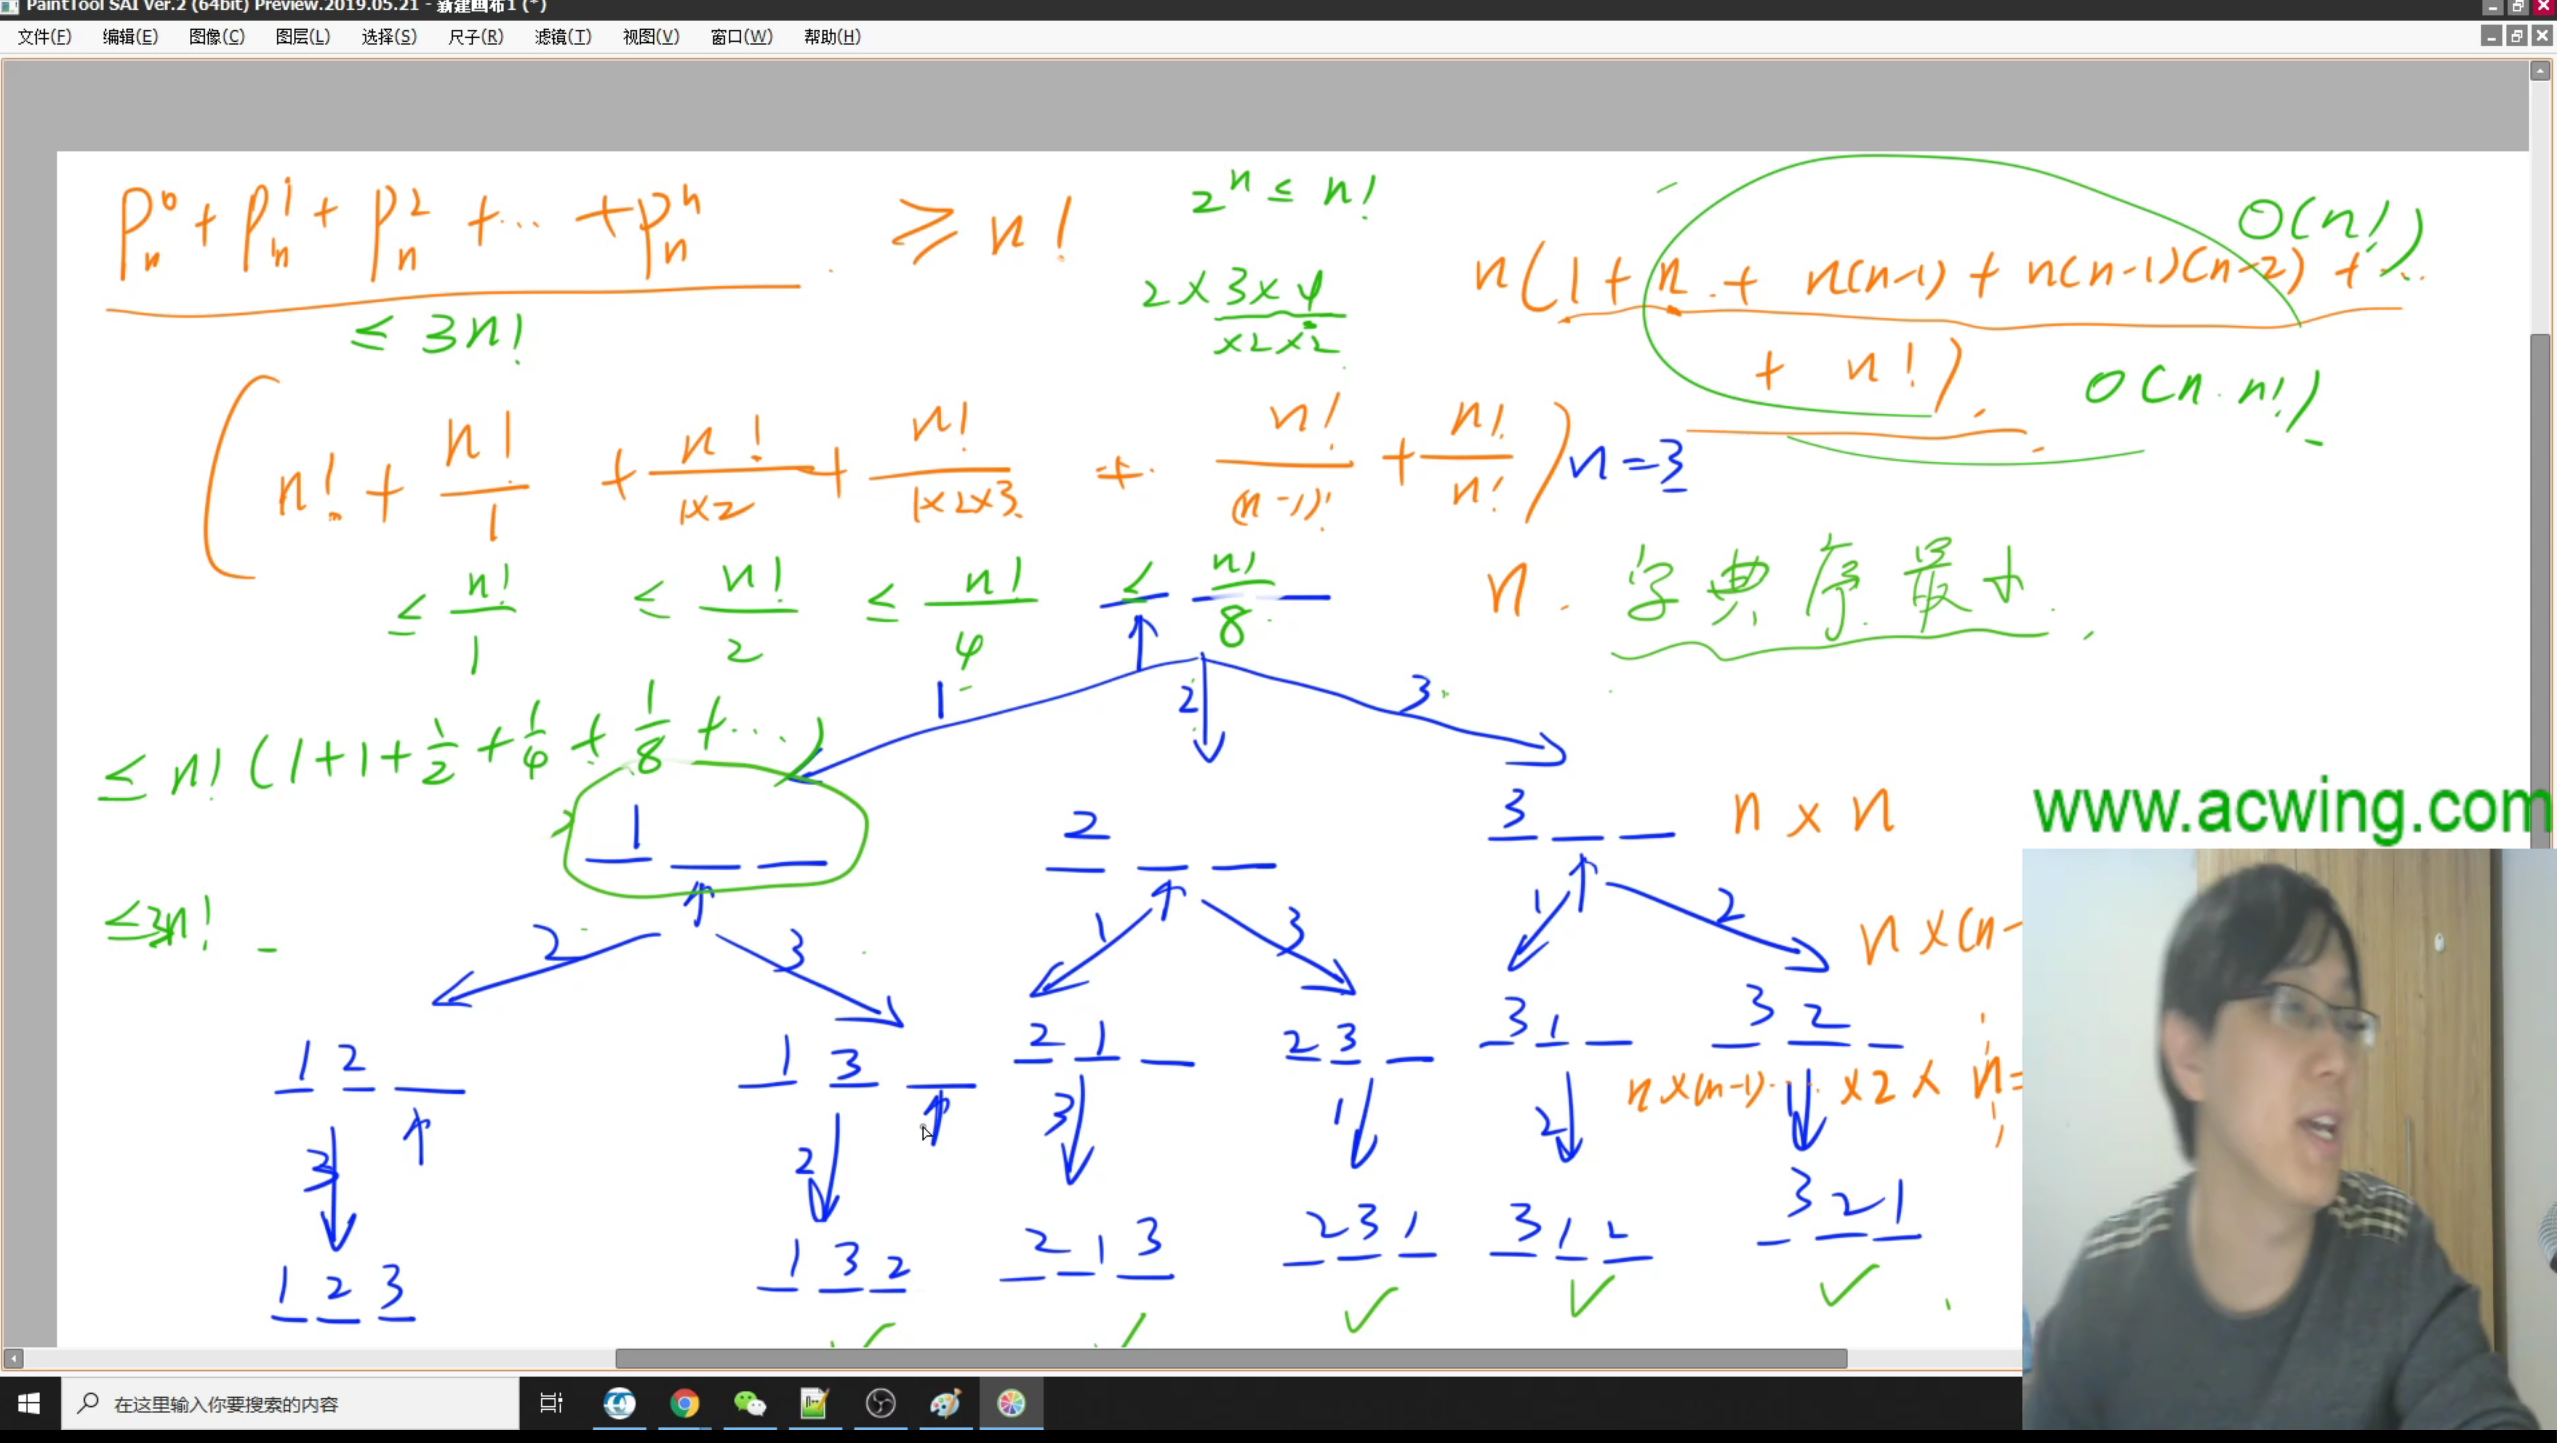 PaintTool SAI Ver.2 (64bit) Preview.2019.05.21 - 新建画布1 (*)
文件(F) 编辑(E) 图像(C) 图层(L) 选择(S) 尺子(R) 滤镜(T) 视图(V) 窗口(W) 帮助(H)
P_n^0 + P_n^1 + P_n^2 + ... + P_n^n ≥ n!
≤ 3n!
2^n ≤ n!
2×3×4
×2×2
O(n!)
n(1 + n + n(n-1) + n(n-1)(n-2) + ...
+ n!)
O(n·n!)
(n! + n!/1 + n!/1×2 + n!/1×2×3 + n!/(n-1)! + n!/n!) n=3
≤ n!/1 ≤ n!/2 ≤ n!/4 ≤ n!/8
n. 字典序最小
1 2 3
≤ n!(1+1+1/2+1/4+1/8+...)
1 2 3 n×n
www.acwing.com
≤3n!
2 3 1 3 1 2 n×(n-
1 2 1 3 2 1 2 3 3 1 3 2
n×(n-1)· ×2× n=
3 2 3 1 2 1
1 2 3 1 3 2 2 1 3 2 3 1 3 1 2 3 2 1
在这里输入你要搜索的内容